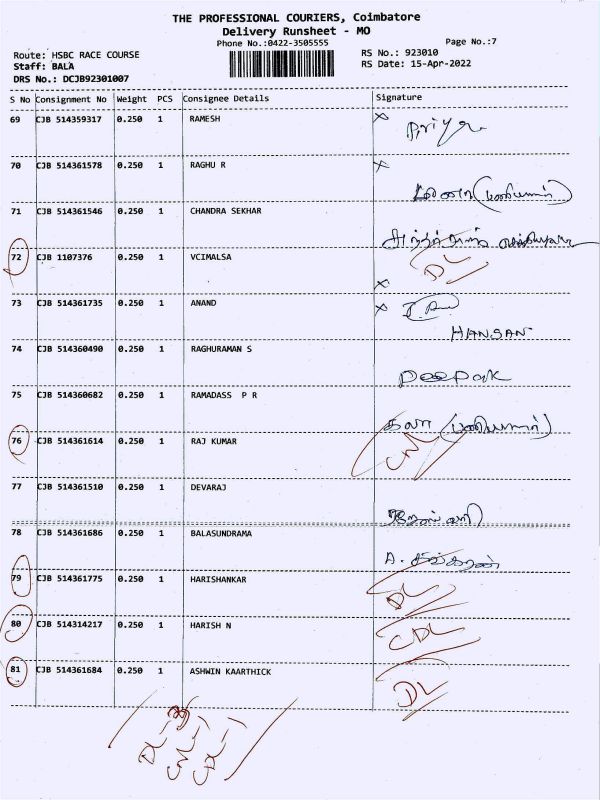 THE PROFESSIONAL COURIERS, Coimbatore
Delivery Runsheet - MO
Phone No.:0422-3505555
Page No.:7
Route: HSBC RACE COURSE
RS No.: 923010
Staff: BALA
RS Date: 15-Apr-2022
DRS No.: DCJB92301007
S No Consignment No Weight PCS Consignee Details Signature
69 CJB 514359317 0.250 1 RAMESH x Priya
70 CJB 514361578 0.250 1 RAGHU R x
71 CJB 514361546 0.250 1 CHANDRA SEKHAR
72 CJB 1107376 0.250 1 VCIMALSA DL
x
73 CJB 514361735 0.250 1 ANAND x
HANSAN
74 CJB 514360490 0.250 1 RAGHURAMAN S
Deepak
75 CJB 514360682 0.250 1 RAMADASS P R
கலா
76 CJB 514361614 0.250 1 RAJ KUMAR CNL
77 CJB 514361510 0.250 1 DEVARAJ
78 CJB 514361686 0.250 1 BALASUNDRAMA
A.
79 CJB 514361775 0.250 1 HARISHANKAR DL
80 CJB 514314217 0.250 1 HARISH N CDL
81 CJB 514361684 0.250 1 ASHWIN KAARTHICK DL